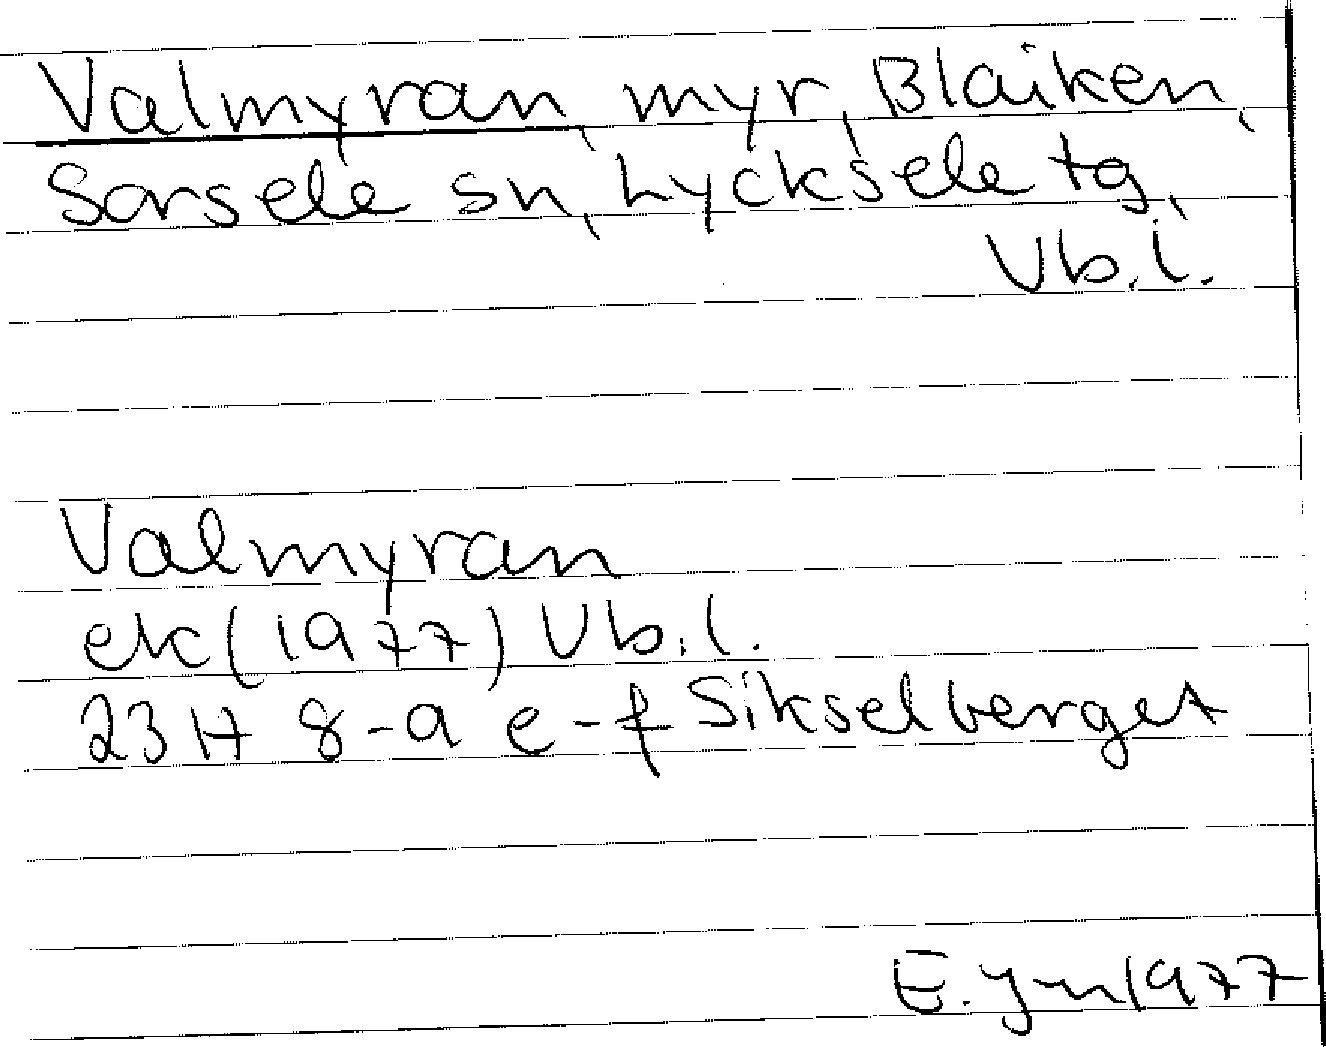 Valmyran, myr, Blaiken,
Sorsele sn, Lycksele tg,
Vb.l.
Valmyran
ek (1977) Vb.l.
23 H 8-9 e-f Sikselberget
E. 1977